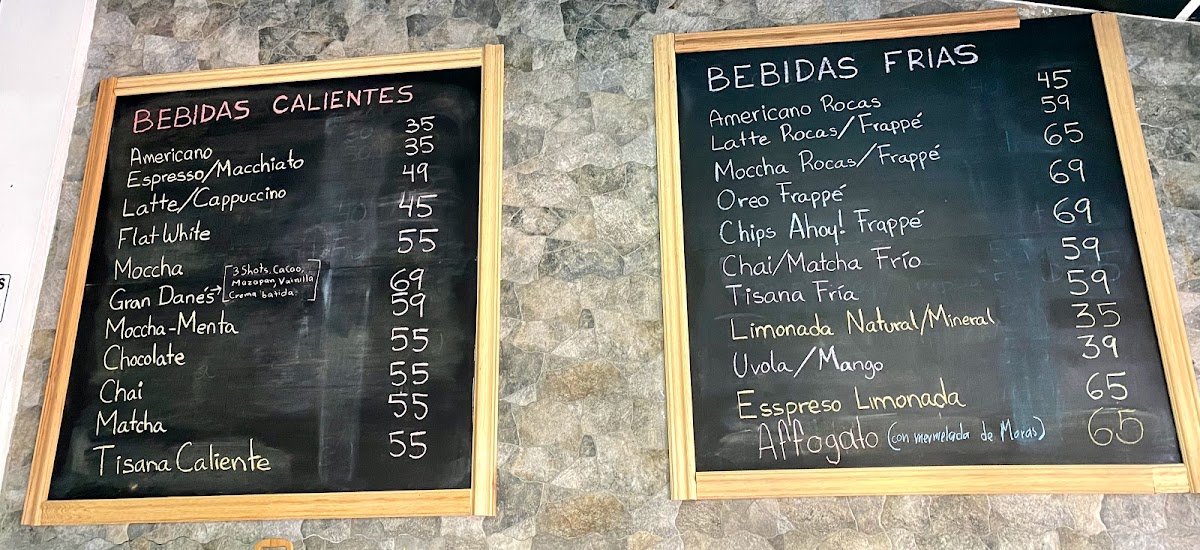 BEBIDAS CALIENTES
Americano 35
Espresso/Macchiato 35
Latte/Cappuccino 49
Flat White 45
Moccha 55
Gran Danés → [3 Shots, Cacao, 69
Mazapan, Vainilla
Crema batida.]
Moccha-Menta 59
Chocolate 55
Chai 55
Matcha 55
Tisana Caliente 55
BEBIDAS FRIAS
Americano Rocas 45
Latte Rocas/Frappé 59
Moccha Rocas/Frappé 65
Oreo Frappé 69
Chips Ahoy! Frappé 69
Chai/Matcha Frío 59
Tisana Fría 59
Limonada Natural/Mineral 35
Uvola/Mango 39
Esspreso Limonada 65
Affogato (con mermelada de Moras) 65